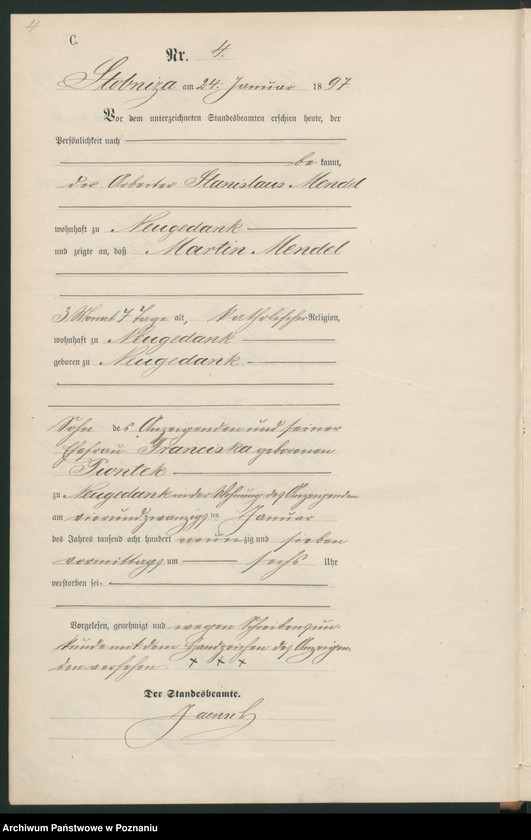 4
C.
Nr. 4.
Stobniza am 24. Januar 1897.
Vor dem unterzeichneten Standesbeamten erschien heute, der
Persönlichkeit nach
be kannt,
der Arbeiter Stanislaus Mendel
wohnhaft zu Neugedank
und zeigte an, daß Martin Mendel
3 Monat 7 Tage alt, katholischer Religion,
wohnhaft zu Neugedank
geboren zu Neugedank
Sohn des Anzeigenden und seiner
Ehefrau Franciska geborenen
Piontek
zu Neugedank in der Wohnung des Anzeigenden
am vierundzwanzigsten Januar
des Jahres tausend acht hundert neunzig und sieben
vormittags um sechs Uhr
verstorben sei.
Vorgelesen, genehmigt und wegen Schreibensun-
kunde mit dem Handzeichen des Anzeigen-
den versehen. + + +
Der Standesbeamte.
Jaensch
Archiwum Państwowe w Poznaniu